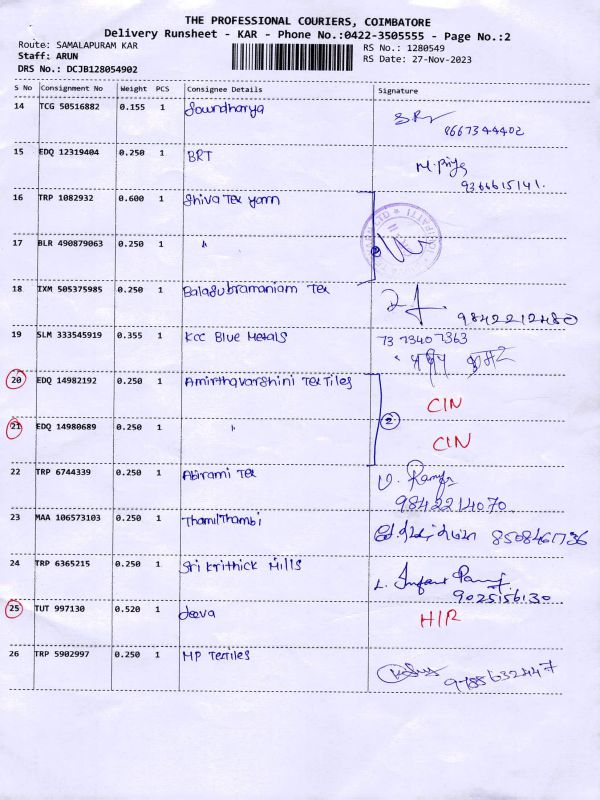 THE PROFESSIONAL COURIERS, COIMBATORE
Delivery Runsheet - KAR - Phone No.:0422-3505555 - Page No.:2
Route: SAMALAPURAM KAR
RS No.: 1280549
Staff: ARUN
RS Date: 27-Nov-2023
DRS No.: DCJB128054902
S No Consignment No Weight PCS Consignee Details Signature
14 TCG 50516882 0.155 1 Soundharya
8667344402
15 EDQ 12319404 0.250 1 BRT M. Priya
9366615141.
16 TRP 1082932 0.600 1 Shiva Tex yarn
17 BLR 490879063 0.250 1 "
18 IXM 505375985 0.250 1 Balasubramaniam Tex
9842212480
19 SLM 333545919 0.355 1 KCC Blue Metals 7373407363
20 EDQ 14982192 0.250 1 Amirthavarshini Textiles CIN
21 EDQ 14980689 0.250 1 " 2 CIN
22 TRP 6744339 0.250 1 Abirami Tex
9842214070
23 MAA 106573103 0.250 1 ThamilThambi 8508461736
24 TRP 6365215 0.250 1 Sri Krithick Mills
9025156130
25 TUT 997130 0.520 1 Jeeva H/R
26 TRP 5902997 0.250 1 MP Textiles
9788632447